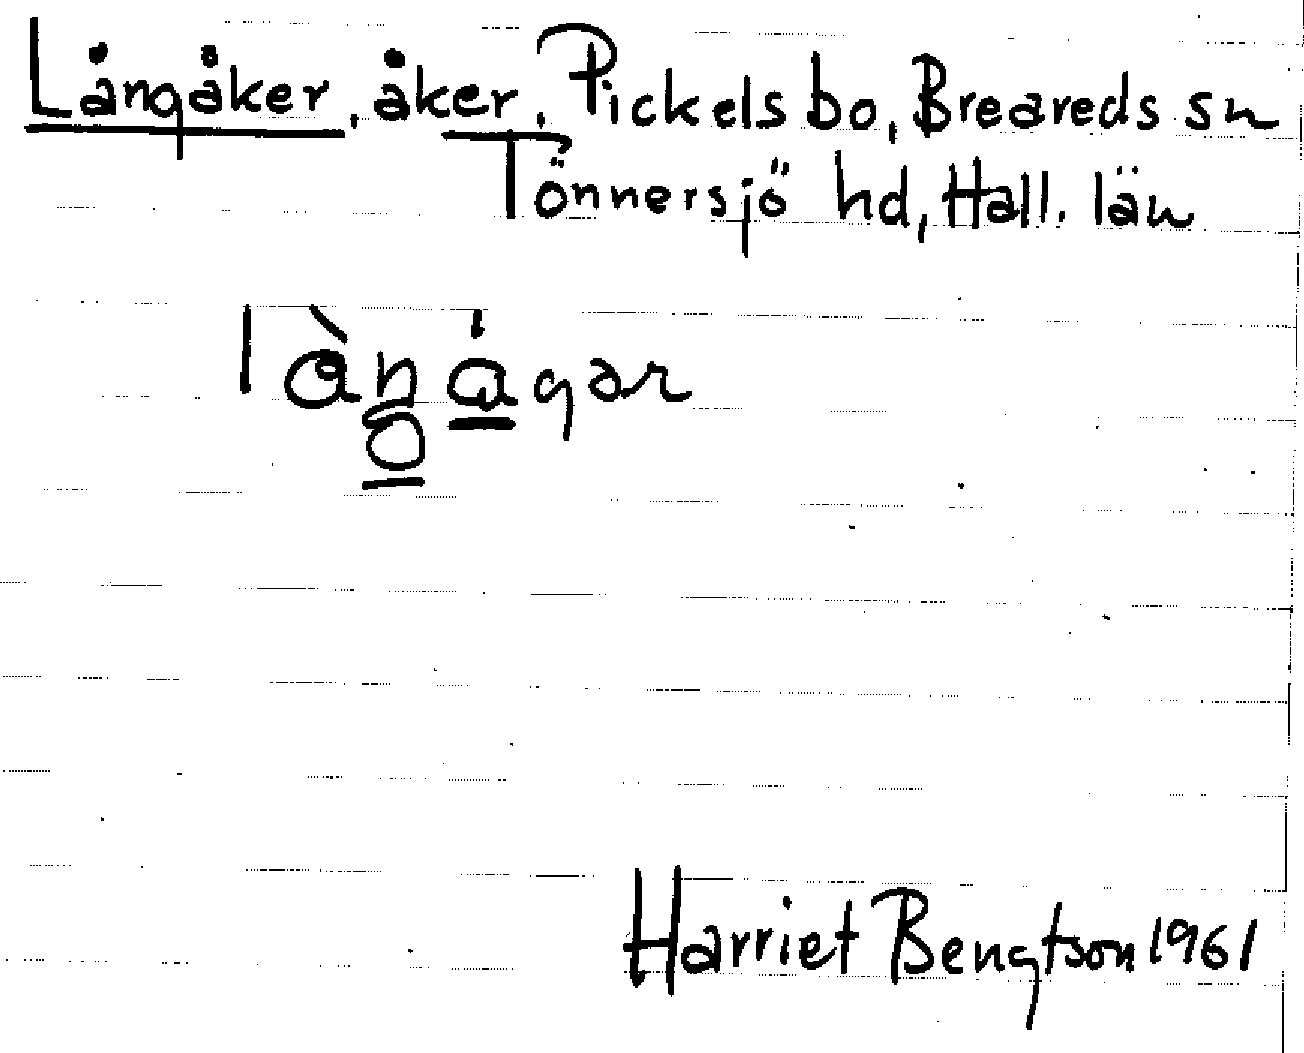 Långåker, åker, Pickelsbo, Breareds sn
Tönnersjö hd, Hall. län
Harriet Bengtson 1961